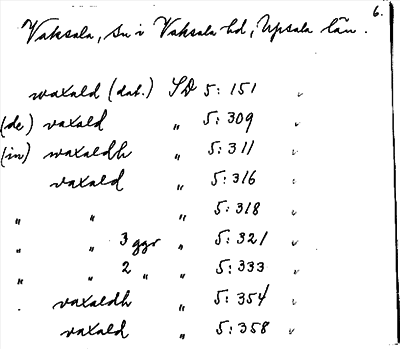 6.
Vaksala, sn i Vaksala hd, Upsala län.
waxald (dat.) SD 5:151 ✓
(de) vaxald " 5:309 ✓
(in) waxaldh " 5:311 ✓
vaxald " 5:316 ✓
" " " 5:318 ✓
" " 3 ggr " 5:321 ✓
" " 2 " " 5:333 ✓
vaxaldh " 5:354 ✓
vaxald " 5:358 ✓